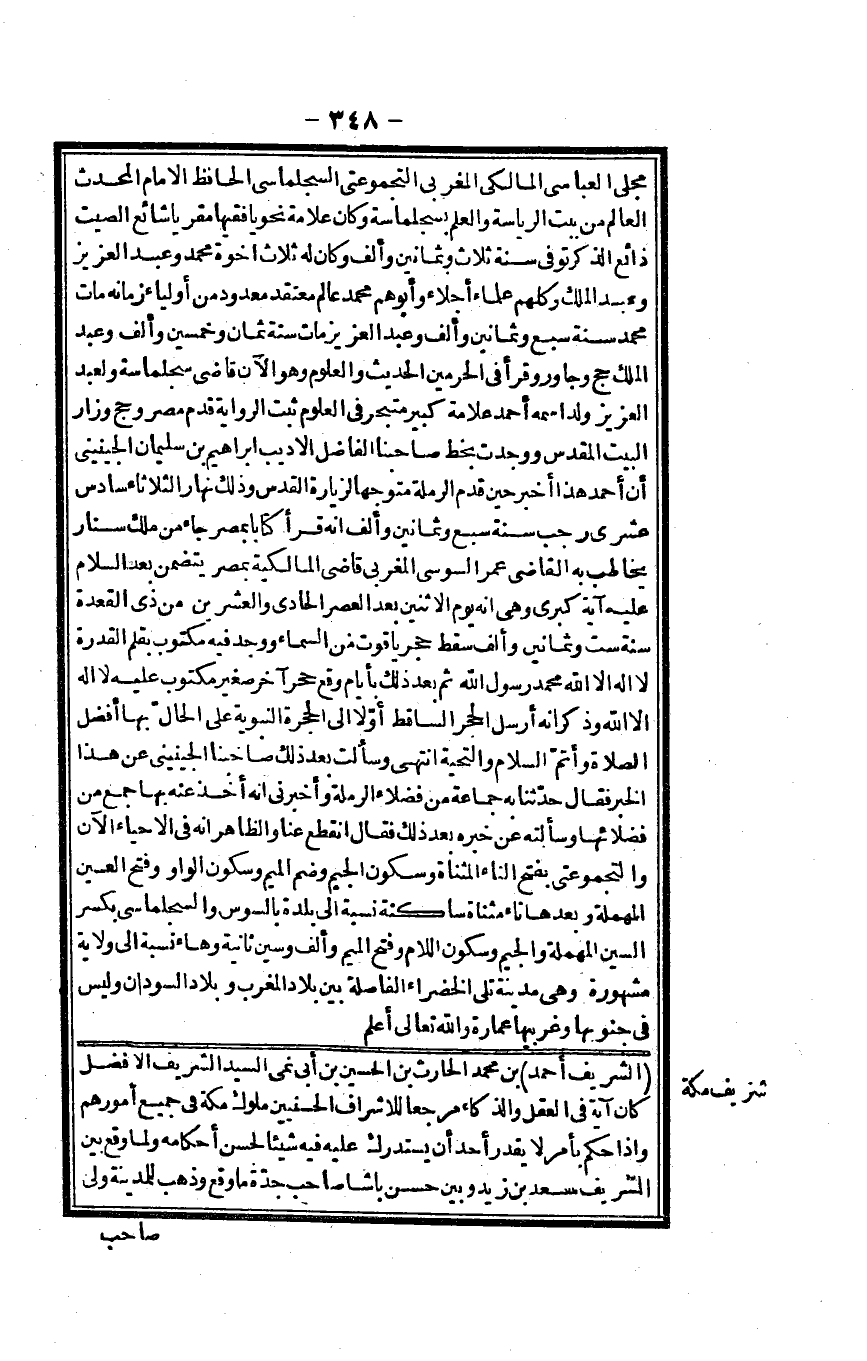 - ٣٤٨ -
مجلى العباسى المالكى المغربى التجموعتى السجلماسى الحافظ الامام المحدث
العالم من بيت الرياسة والعلم بسجلماسة وكان علامة نحويا فقيها مقريا شائع الصيت
ذائع الذكر توفى سنة ثلاث وثمانين وألف وكان له ثلاث اخوة محمد وعبد العزيز
وعبد الملك وكلهم علماء أجلاء وأبوهم محمد عالم معتقد معدود من أولياء زمانه مات
محمد سنة سبع وثمانين وألف وعبد العزيز مات سنة ثمان وخمسين وألف وعبد
الملك حج وجاور وقرأ فى الحرمين الحديث والعلوم وهو الآن قاضى سجلماسة ولعبد
العزيز ولد اسمه أحمد علامة كبير متبحر فى العلوم ثبت الرواية قدم مصر وحج وزار
البيت المقدس ووجدت بخط صاحبنا الفاضل الاديب ابراهيم بن سليمان الجينينى
أن أحمد هذا أخبر حين قدم الرملة متوجها لزيارة القدس وذلك نهار الثلاثاء سادس
عشرى رجب سنة سبع وثمانين وألف انه قرأ كتابا بمصر جاء من ملك سنار
يخاطب به القاضى عمر السوسى المغربى قاضى المالكية بمصر يتضمن بعد السلام
عليه آية كبرى وهى انه يوم الاثنين بعد العصر الحادى والعشرين من ذى القعدة
سنة ست وثمانين وألف سقط حجر ياقوت من السماء ووجد فيه مكتوب بقلم القدرة
لا اله الا الله محمد رسول الله ثم بعد ذلك بأيام وقع حجر آخر صغير مكتوب عليه لا اله
الا الله وذكر انه أرسل الحجر الساقط أوّلا الى الحجرة النبوية على الحالّ بها أفضل
الصلاة وأتمّ السلام والتحية انتهى وسألت بعد ذلك صاحبنا الجينينى عن هذا
الخبر فقال حدّثنا به جماعة من فضلاء الرملة وأخبرنى انه أخذ عنه بها جمع من
فضلائها وسألته عن خبره بعد ذلك فقال انقطع عنا والظاهر انه فى الاحياء الآن
والتجموعتى بفتح التاء المثناة وسكون الجيم وضم الميم وسكون الواو وفتح العين
المهملة وبعدها تاء مثناة ساكنة نسبة الى بلدة بالسوس والسجلماسى بكسر
السين المهملة والجيم وسكون اللام وفتح الميم وألف وسين ثانية وهاء نسبة الى ولاية
مشهورة وهى مدينة تلى الخضراء الفاصلة بين بلاد المغرب وبلاد السودان وليس
فى جنوبها وغربيها عمارة والله تعالى أعلم
(الشريف أحمد) بن محمد الحارث بن الحسين بن أبى نمى السيد الشريف الافضل
شريف مكة
كان آية فى العقل والذكاء مرجعا للاشراف الحسنيين ملوك مكة فى جميع أمورهم
واذا حكم بأمر لا يقدر أحد أن يستدرك عليه فيه شيئا لحسن أحكامه ولما وقع بين
الشريف سعد بن زيد وبين حسن باشا صاحب جدّة ما وقع وذهب للمدينة ولى
صاحب